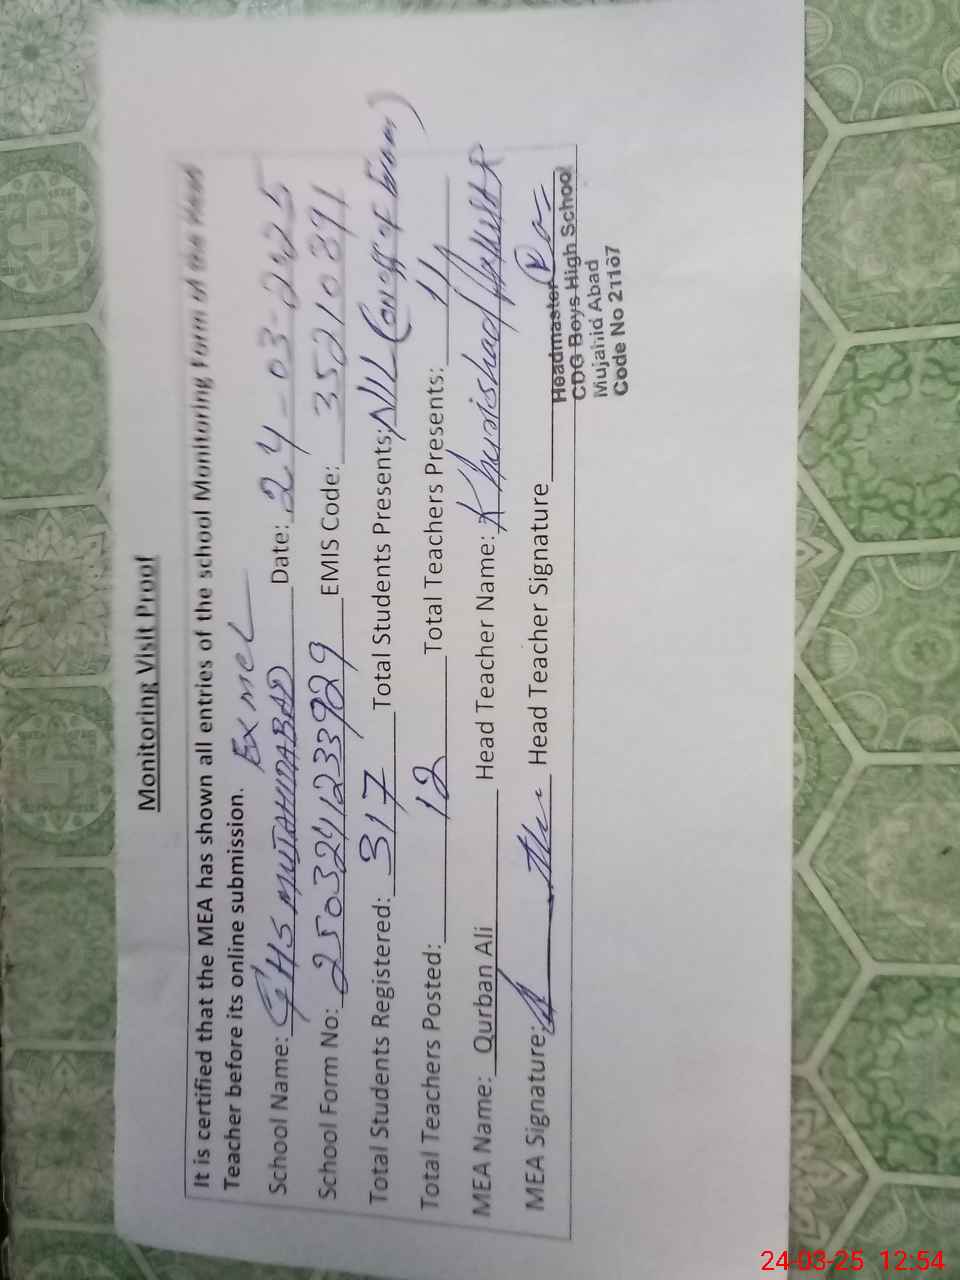 Monitoring Visit Proof
It is certified that the MEA has shown all entries of the school Monitoring Form of the Head
Teacher before its online submission.
Ex MCL
School Name: GHS MUJAHIDABAD Date: 24-03-2025
School Form No: 250324123 3929 EMIS Code: 35210391
Total Students Registered: 317 Total Students Presents: NIL ( of Exam)
Total Teachers Posted: 12 Total Teachers Presents: 11
MEA Name: Qurban Ali Head Teacher Name: Khurishad
MEA Signature: Head Teacher Signature
Headmaster
CDG Boys High School
Mujahid Abad
Code No 21107
24-03-25 12:54